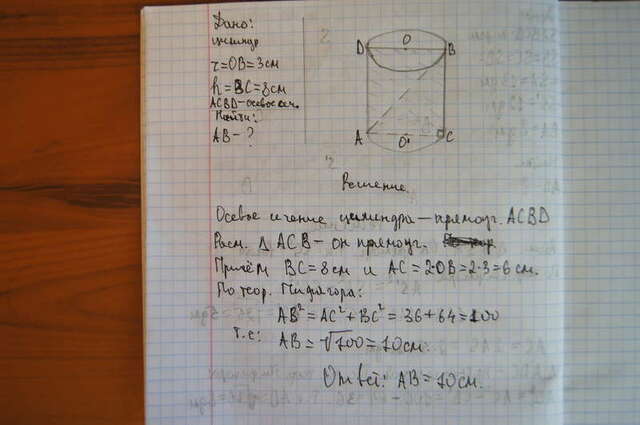 Дано:
цилиндр
r=OB=3см
h=BC=8см
ACBD-осевое сеч.
Найти:
AB-?
D O B
A O' C
Решение
Осевое сечение цилиндра-прямоуг. ACBD
Расм. Δ ACB-он прямоуг.
Причём BC=8см и AC=2·OB=2·3=6см.
По теор. Пифагора:
AB²=AC²+BC²=36+64=100
т.е: AB=√100=10см.
Ответ: AB=10см.